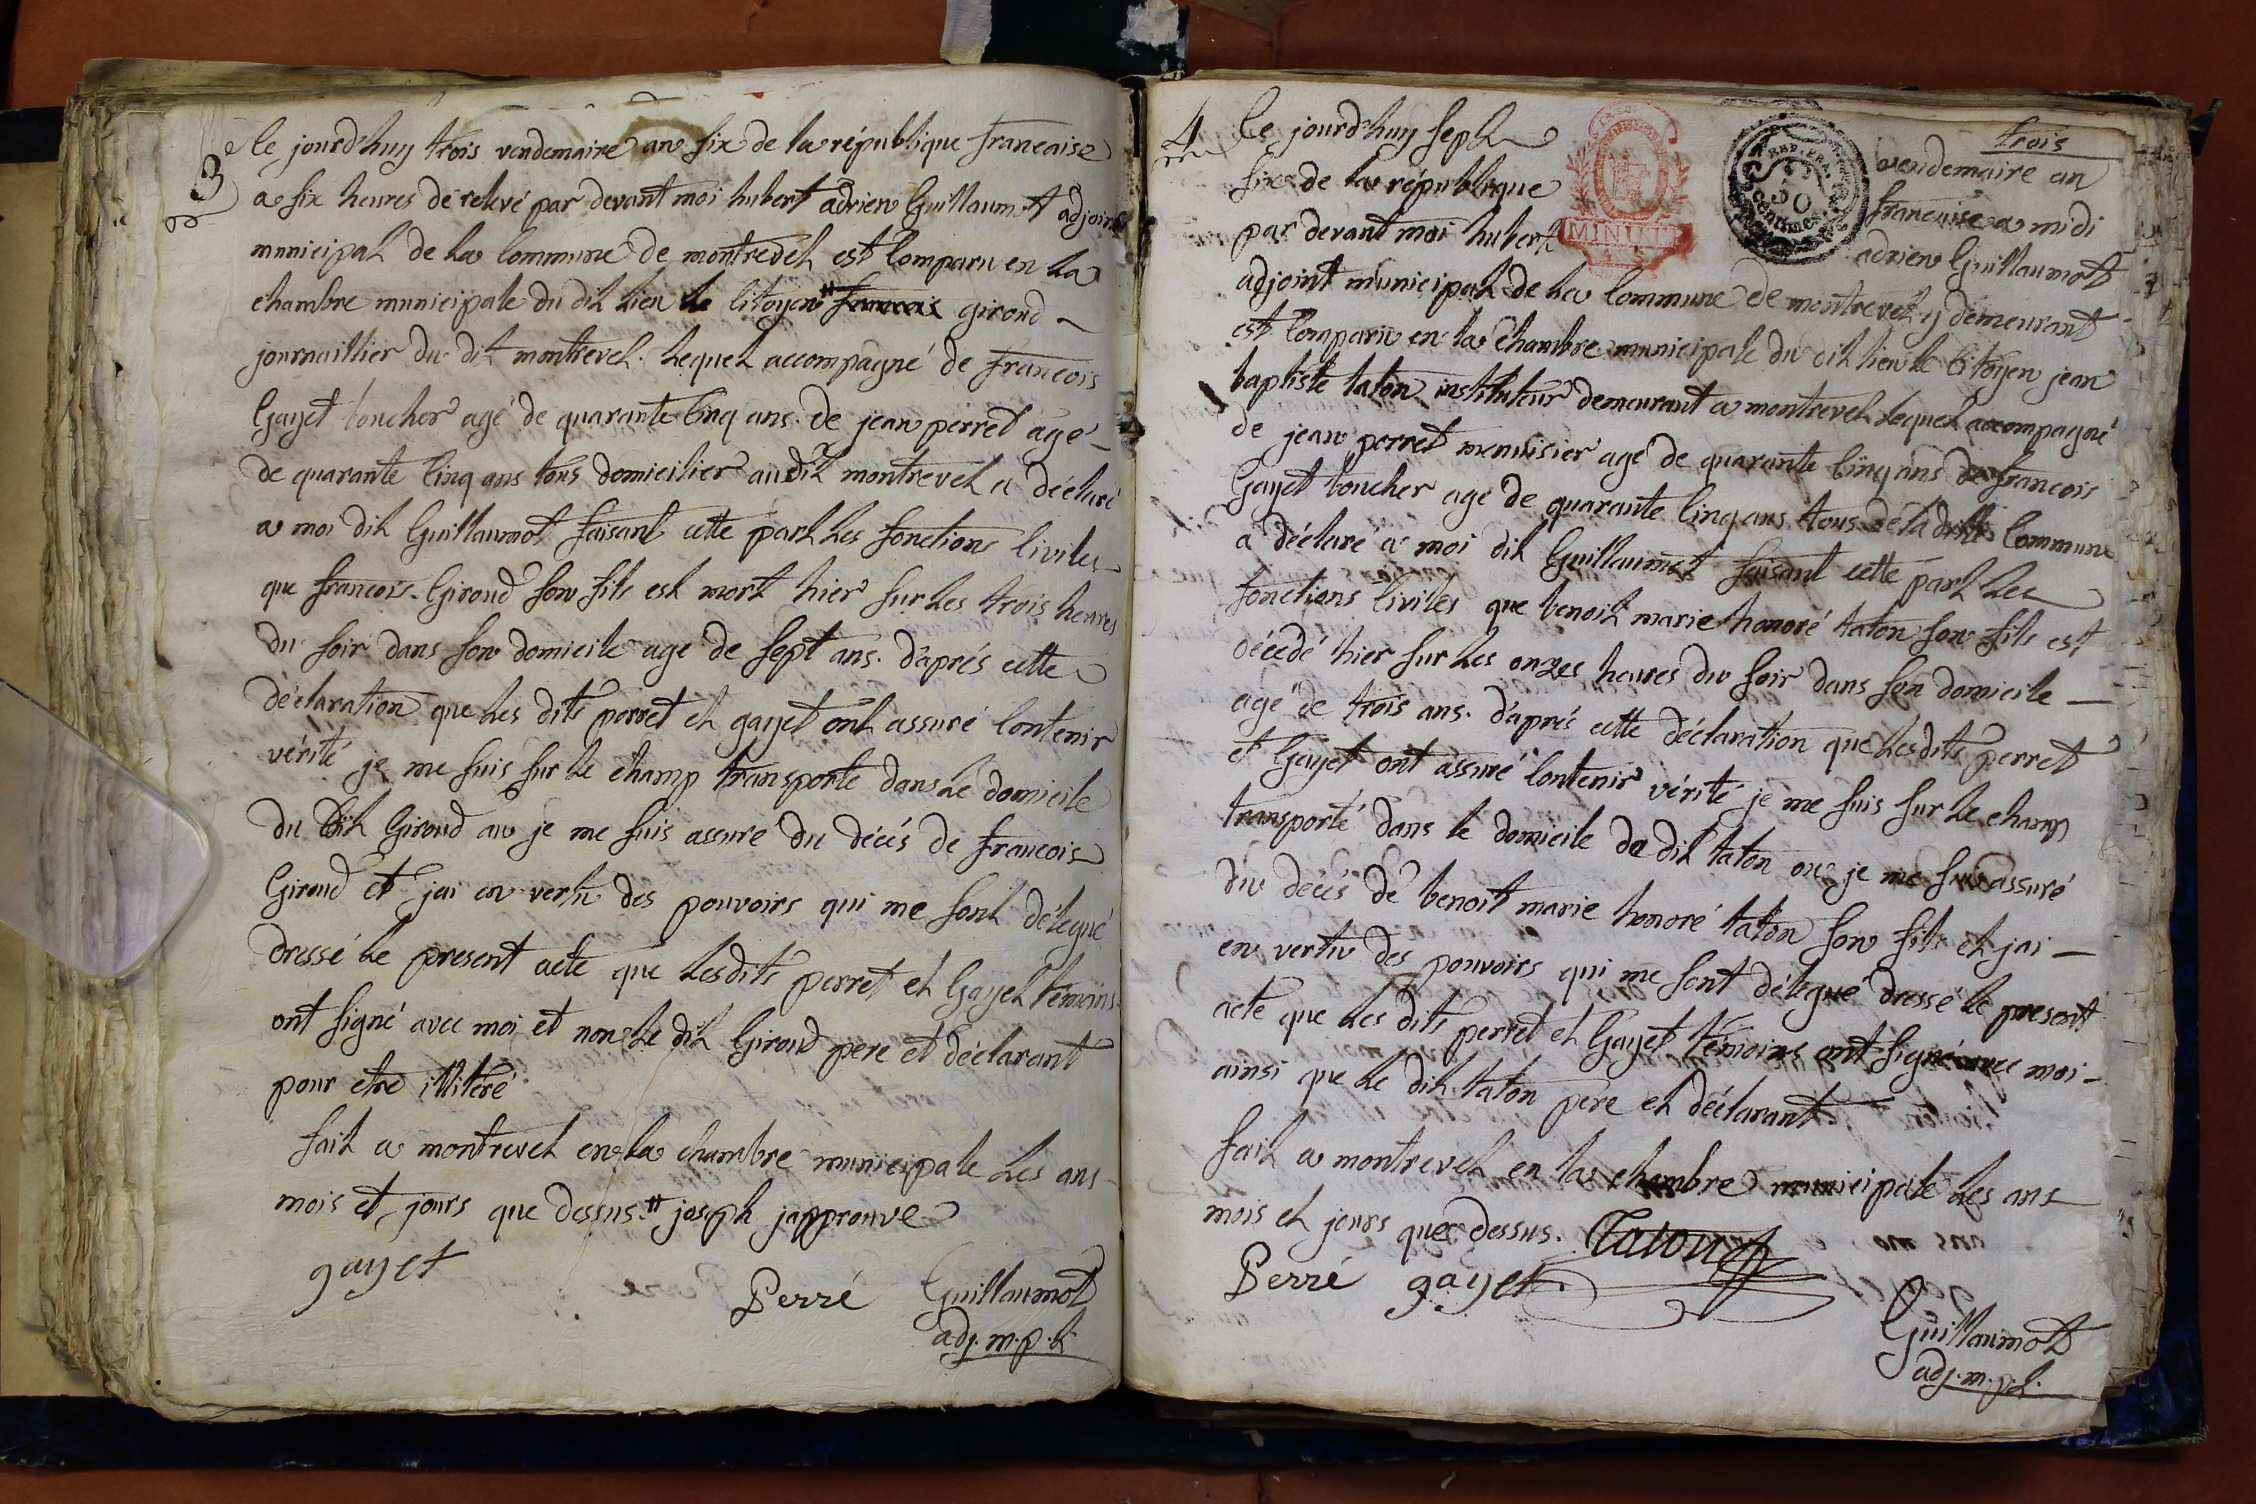 3
Ce jourd'huy trois vendemaire an six de la république francaise
a six heures de relevé par devant moi hubert adrien Guillaumot adjoint
municipal de la Commune de montredel est Comparu en la
chambre municipale du dit lieu le Citoyen # francois girond
journaillier du dit montrevel. lequel accompagné de francois
Gayet Cocher agé de quarante Cinq ans. de jean perret age
de quarante Cinq ans tous domicilier audit montrevel a déclaré
a moi dit Guillaumot faisant cette part les fonctions Civiles
que francois Girond son fils est mort hier sur les trois heures
du soir dans son domicile age de sept ans. d'aprés cette
déclaration que les dits perret et gayet ont assuré Contenir
vérité je me suis sur le champ transporté dans le domicile
du dit Girond au je me suis assuré du décés de francois
Girond et jai en vertu des pouvoirs qui me sont délegué
dressé le present acte que lesdits perret et Gayet témoins
ont signé avec moi et non le dit Girond pere et déclarant
pour etre illiteré
fait a montrevel en la chambre municipale les ans
mois et jours que dessus. # joseph japprouve
gayet
Perré Guillaumot
adj. m. p. l.
4 trois
Ce jourd'huy sept vendemaire an
six de la république francaise a midi
par devant moi hubert adrien Guillaumot
MINUTE
REP. FRA.
50
centimes.
adjoint municipal de la Commune de montrevel y demeurant
est Comparu en la chambre municipale du dit lieu le Citoyen jean
baptiste taton instituteur demeurant a montrevel lequel accompagné
de jean perret menuisier age de quarante Cinq ans de francois
Gayet Cocher age de quarante Cinq ans tous de ladite Commune
a déclaré a moi dit Guillaumot faisant cette part les
fonctions Civiles que benoit marie honoré taton son fils est
décedé hier sur les onzes heures du soir dans son domicile
age de trois ans. d'aprés cette déclaration que lesdits perret
et Gayet ont assuré Contenir vérité je me suis sur le champ
transporté dans le domicile du dit taton ou je me suis assuré
du décés de benoit marie honoré taton son fils et jai
en vertu des pouvoirs qui me sont délegué dressé le present
acte que les dits perret et Gayet témoins ont signé avec moi
ainsi que le dit taton pere et déclarant
fait a montrevel en la chambre municipale les ans
mois et jours que dessus. Taton
Perré gayet
Guillaumot
adj. m. p. l.